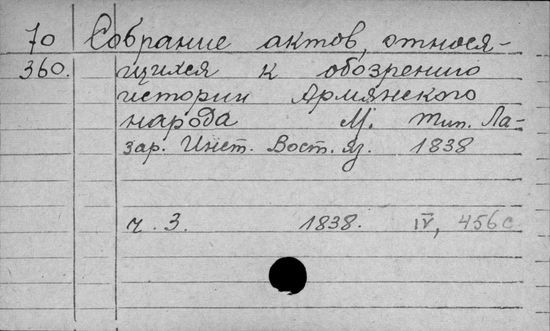 70 Собрание актов, относя-
360. щихся к обозрению
истории Армянского
народа М. Тип. Ла-
зар. Инст. Вост. яз. 1838
ч. 3. 1838. IV, 456 с